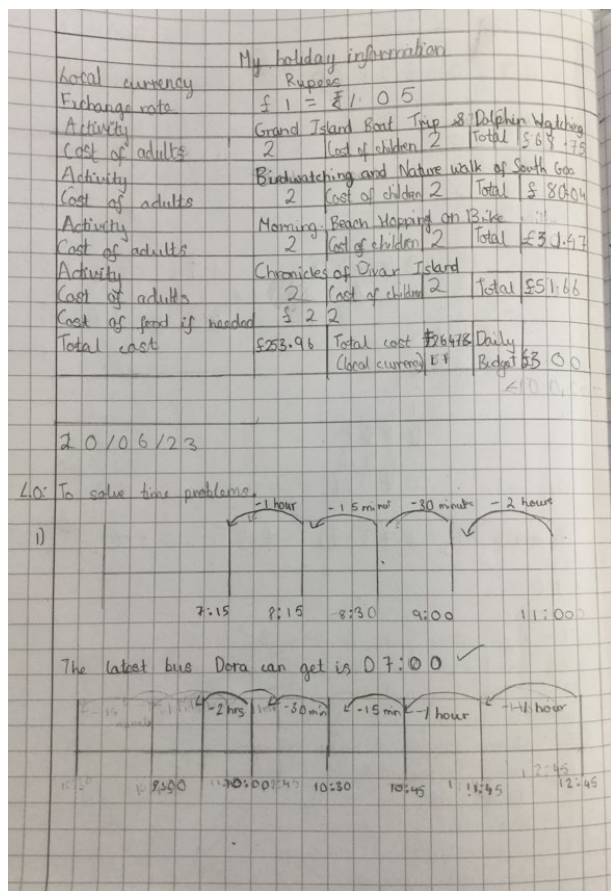 My holiday information
Local currency Rupees
Exchange rate £1 = ₹1.05
Activity Grand Island Boat Trip & Dolphin Watching
Cost of adults 2 Cost of children 2 Total £68.75
Activity Birdwatching and Nature walk of South Goa
Cost of adults 2 Cost of children 2 Total £80.04
Activity Morning Beach Hopping on Bike
Cost of adults 2 Cost of children 2 Total £31.47
Activity Chronicles of Divar Island
Cost of adults 2 Cost of children 2 Total £51.66
Cost of food if needed £22
Total cost £253.96 Total cost ₹26478 Daily
(local currency) Budget £300
20/06/23
L.O: To solve time problems.
-1 hour -15 minut -30 minute -2 hours
1)
7:15 8:15 8:30 9:00 11:00
The latest bus Dora can get is 07:00 ✓
-2 hrs -30 min -15 min -1 hour hour
10:00 10:30 10:45 11:45 12:45
12:45